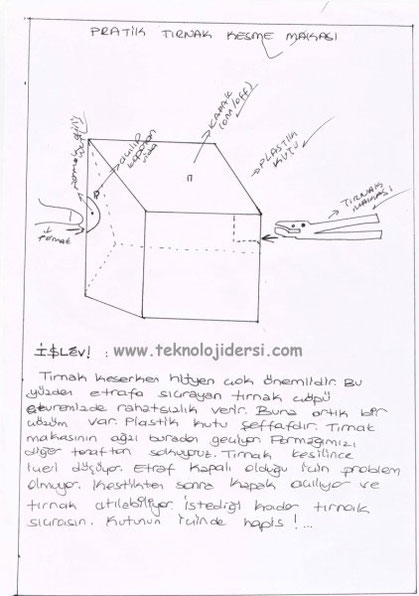 PRATİK TIRNAK KESME MAKASI
KAPAK (on/off)
açılıp kapanan vida
PLASTİK KUTU
TIRNAK MAKASI
Tırnak
İŞLEVİ : www.teknolojidersi.com
Tırnak keserken hijyen çok önemlidir. Bu
yüzden etrafa sıçrayan tırnak çöpü
evrenizde rahatsızlık verir. Buna artık bir
çözüm var. Plastik kutu şeffafdır. Tırnak
makasının ağzı buradan geçiyor. Parmağımızı
diğer taraftan sokuyoruz. Tırnak kesilince
içeri düşüyor. Etraf kapalı olduğu için problem
olmuyor. Kestikten sonra kapak açılıyor ve
tırnak atılabiliyor. İstediği kadar tırnak
sıçrasın. Kutunun içinde hapis !...